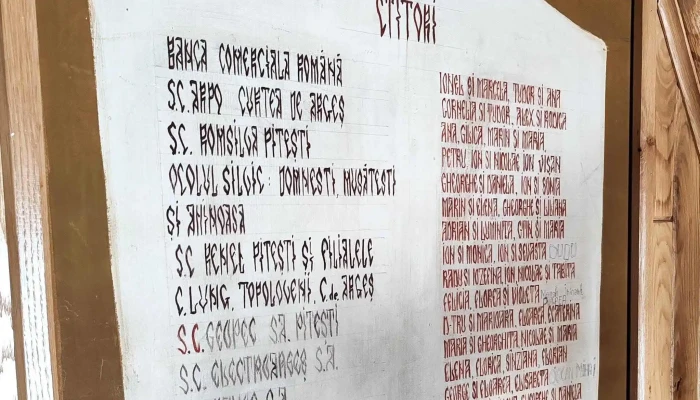 CTITORI
BANCA COMERCIALA ROMÂNĂ
S.C. ARPO CURTEA DE ARGEȘ
S.C. ROMSILVA PITEȘTI
OCOLUL SILVIC: DOMNEȘTI, MUSĂTEȘTI
ȘI ANINOASA
S.C. HENEL PITEȘTI ȘI FILIALELE
C.LUNG, TOPOLOVENI, C.de ARGEȘ
S.C. GEOPEC S.A. PITEȘTI
S.C. ELECTROARGEȘ S.A.
IONEL ȘI MARCELA, TUDOR ȘI ANA
CORNELIA SI TUDOR, ALEX SI RODICA
ANA, GILICA, MARIN SI MARIA,
PETRU, ION SI NICOLAE ION VIȘAN
GHEORGHE ȘI DANIELA, ION SI SONIA
MARIN SI ELENA, GHEORGHE ȘI LILIANA
ADRIAN SI LUMINIȚA, CTIN. SI MARIA
ION SI MONICA, ION SI SEVASTA
RADU SI IOZEFINA, ION, NICOLAE SI TABITA
FELICIA, FLOREA SI VIOLETA
D-TRU SI MARIOARA, FLOAREA, ECATERINA
MARIA SI GHEORGHITA, NICOLAE SI MARIA
ELENA, FLORICA, SINZIANA, FLORIAN
GEORGE SI FLOAREA, ELISABETA
GHEORGHE SI